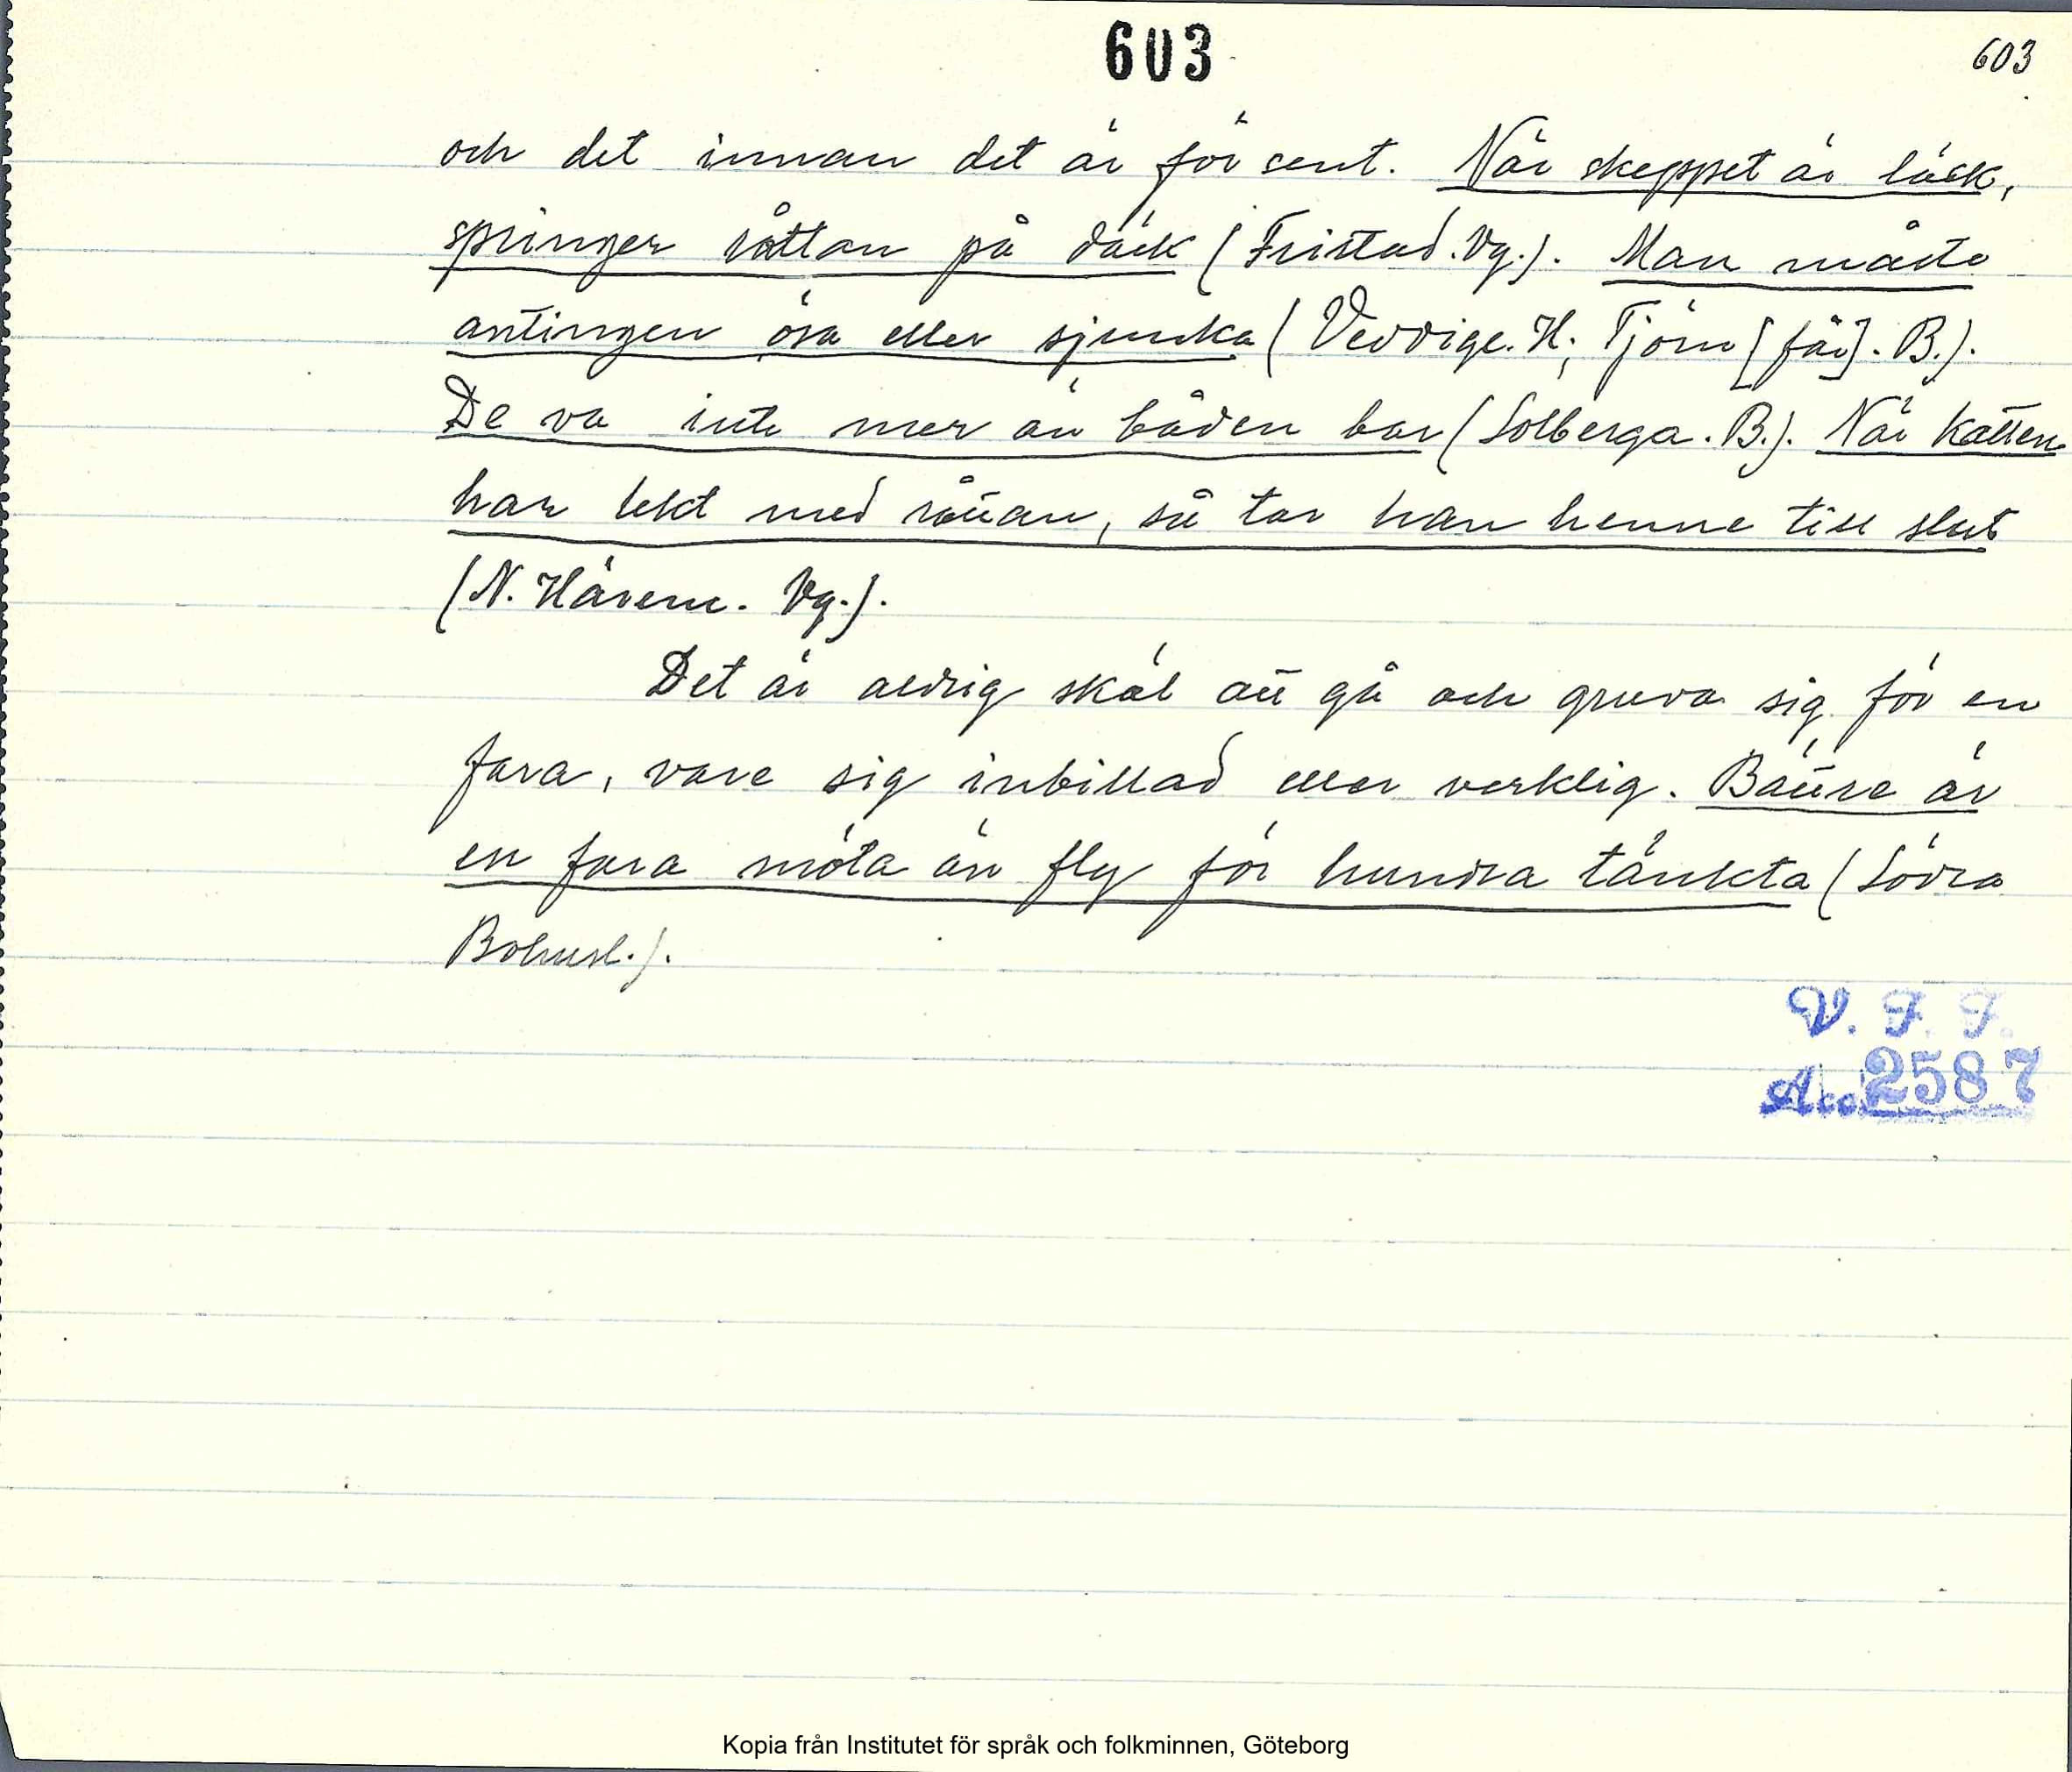 603
603
och det innan det är för sent. När skeppet är läck,
springer råttan på däck (Fristad. Vg.). Man måste
antingen ösa eller sjunka (Veddige. H; Tjörn [får]. B.).
De va inte mer än båden bar (Solberga. B.). När katten
har lekt med råttan, så tar han henne till slut
(N. Härene. Vg.).
Det är aldrig skäl att gå och gruva sig för en
fara, vare sig inbillad eller verklig. Bättre är
en fara möta än fly för hundra tänkta (Södra
Bohusl.).
V. F. F.
Acc. 2587
Kopia från Institutet för språk och folkminnen, Göteborg